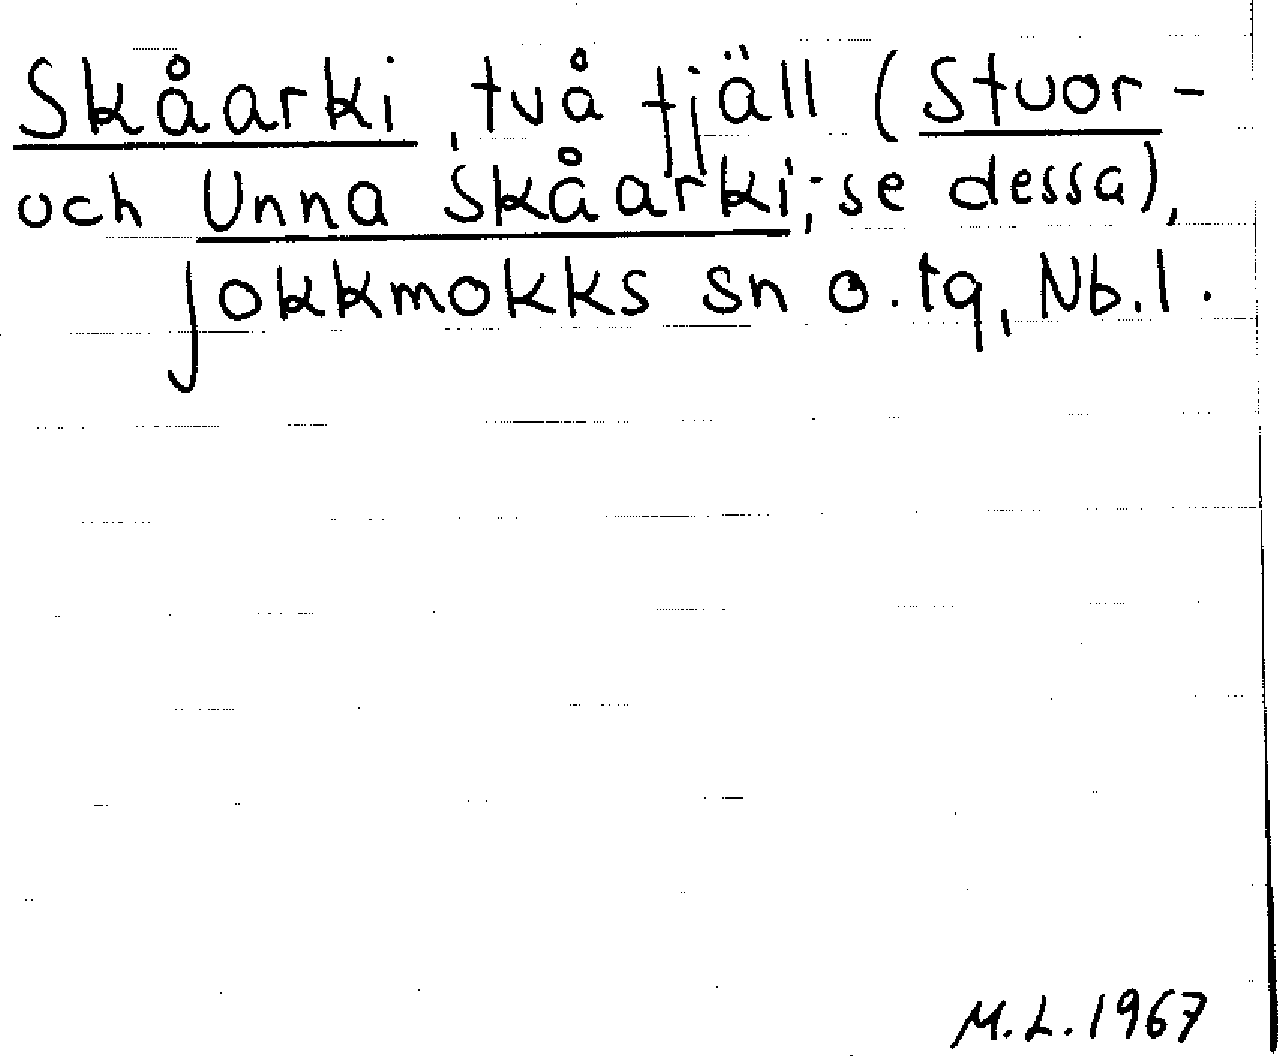 Skåarki, två fjäll (Stuor-
och Unna Skåarki; se dessa),
Jokkmokks sn o. tg, Nb. l.
M. L. 1967